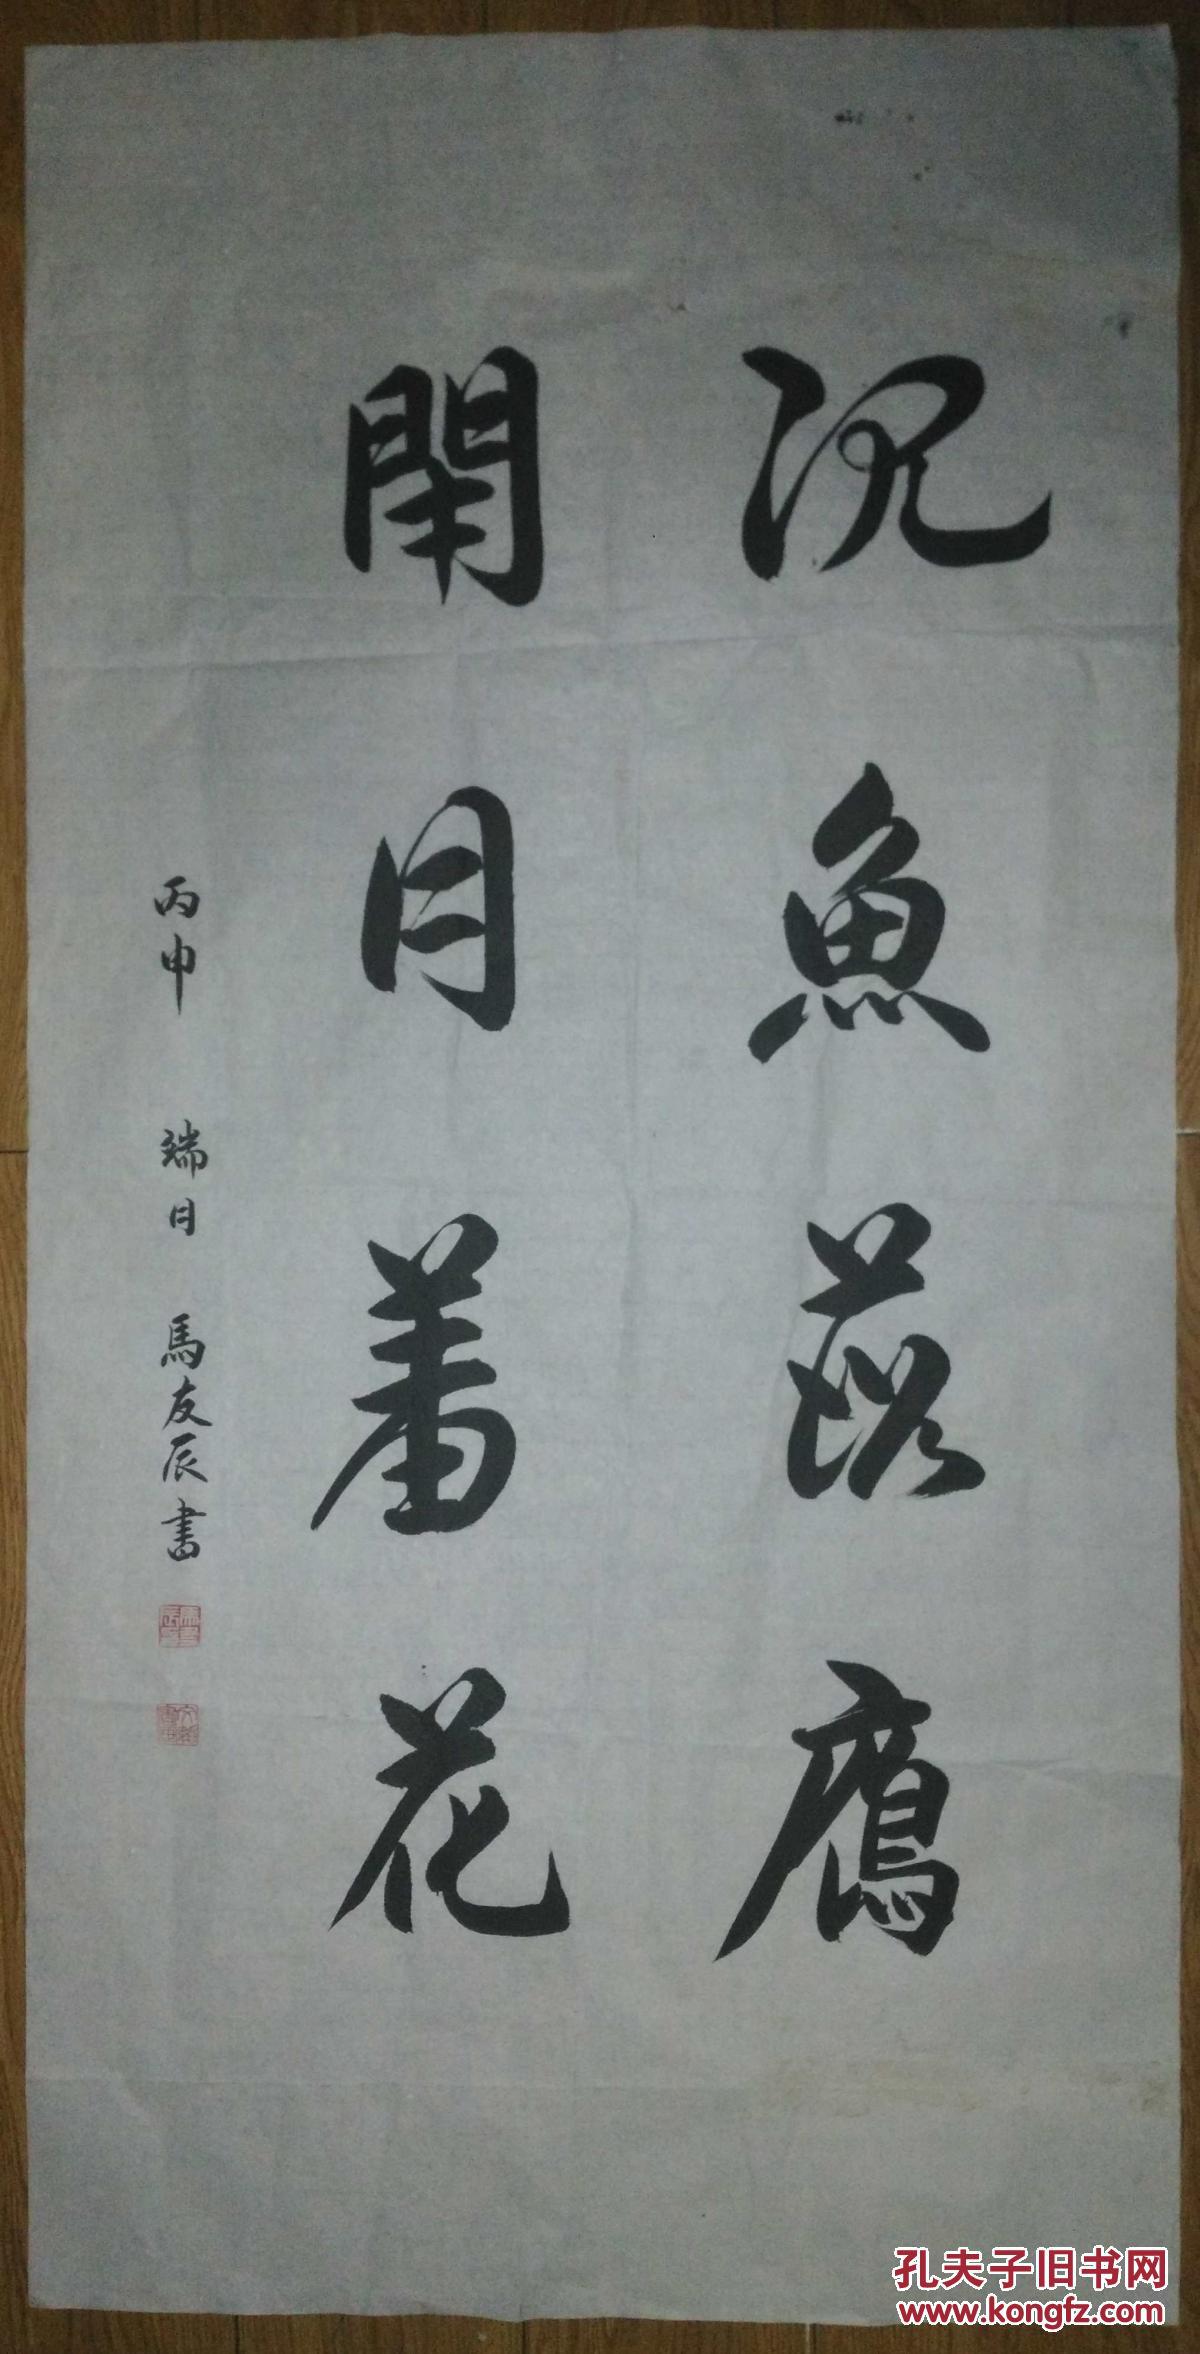 沉魚落鴈
閉月羞花
丙申 端月 馬友辰書
孔夫子旧书网
www.kongfz.com